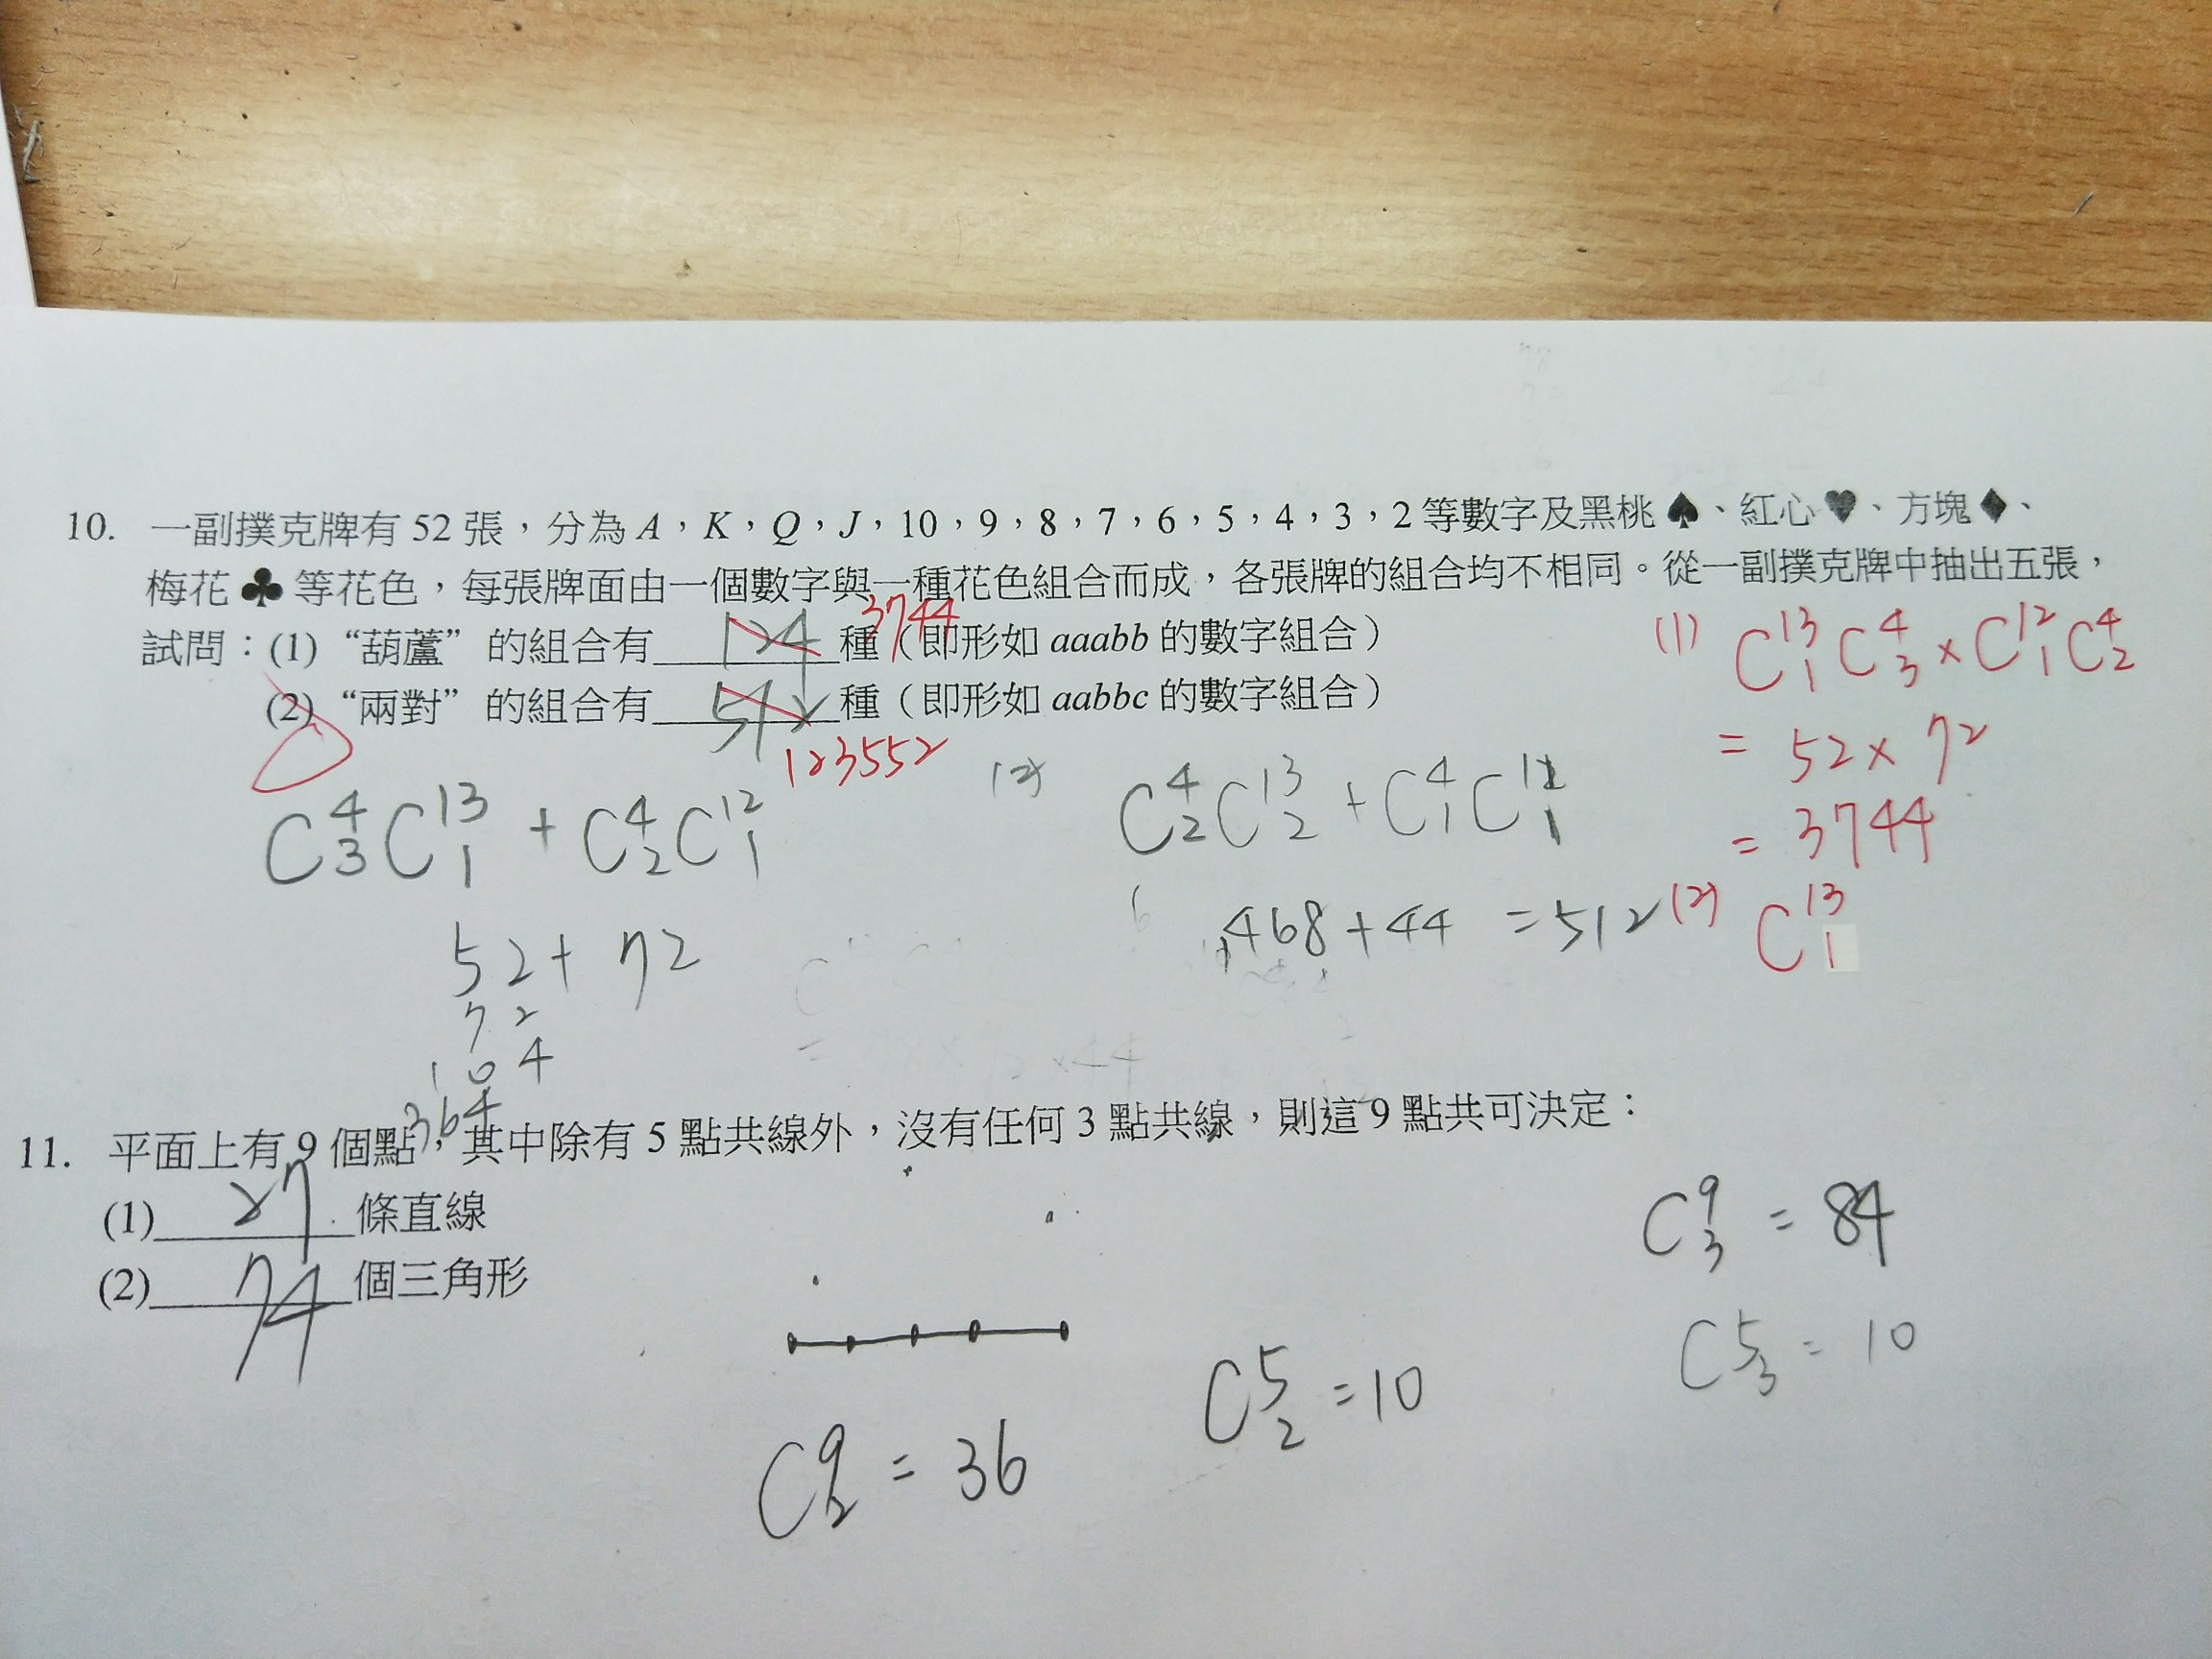 10. 一副撲克牌有 52 張，分為 A，K，Q，J，10，9，8，7，6，5，4，3，2 等數字及黑桃♠、紅心♥、方塊♦、
梅花♣等花色，每張牌面由一個數字與一種花色組合而成，各張牌的組合均不相同。從一副撲克牌中抽出五張，
試問：(1)“葫蘆”的組合有 124 3744 種（即形如 aaabb 的數字組合）
(2)“兩對”的組合有 512 種（即形如 aabbc 的數字組合）
123552
(1) C¹³₁ C⁴₃ × C¹²₁ C⁴₂
= 52 × 72
= 3744
(2) C¹³₁
C⁴₃ C¹³₁ + C⁴₂ C¹²₁
52 + 72
72
104
364
(2) C⁴₂ C¹³₂ + C⁴₁ C¹¹₁
6
468 + 44 = 512
11. 平面上有 9 個點，其中除有 5 點共線外，沒有任何 3 點共線，則這 9 點共可決定：
(1) 27 條直線
(2) 74 個三角形
C⁹₂ = 36
C⁵₂ = 10
C⁹₃ = 84
C⁵₃ = 10